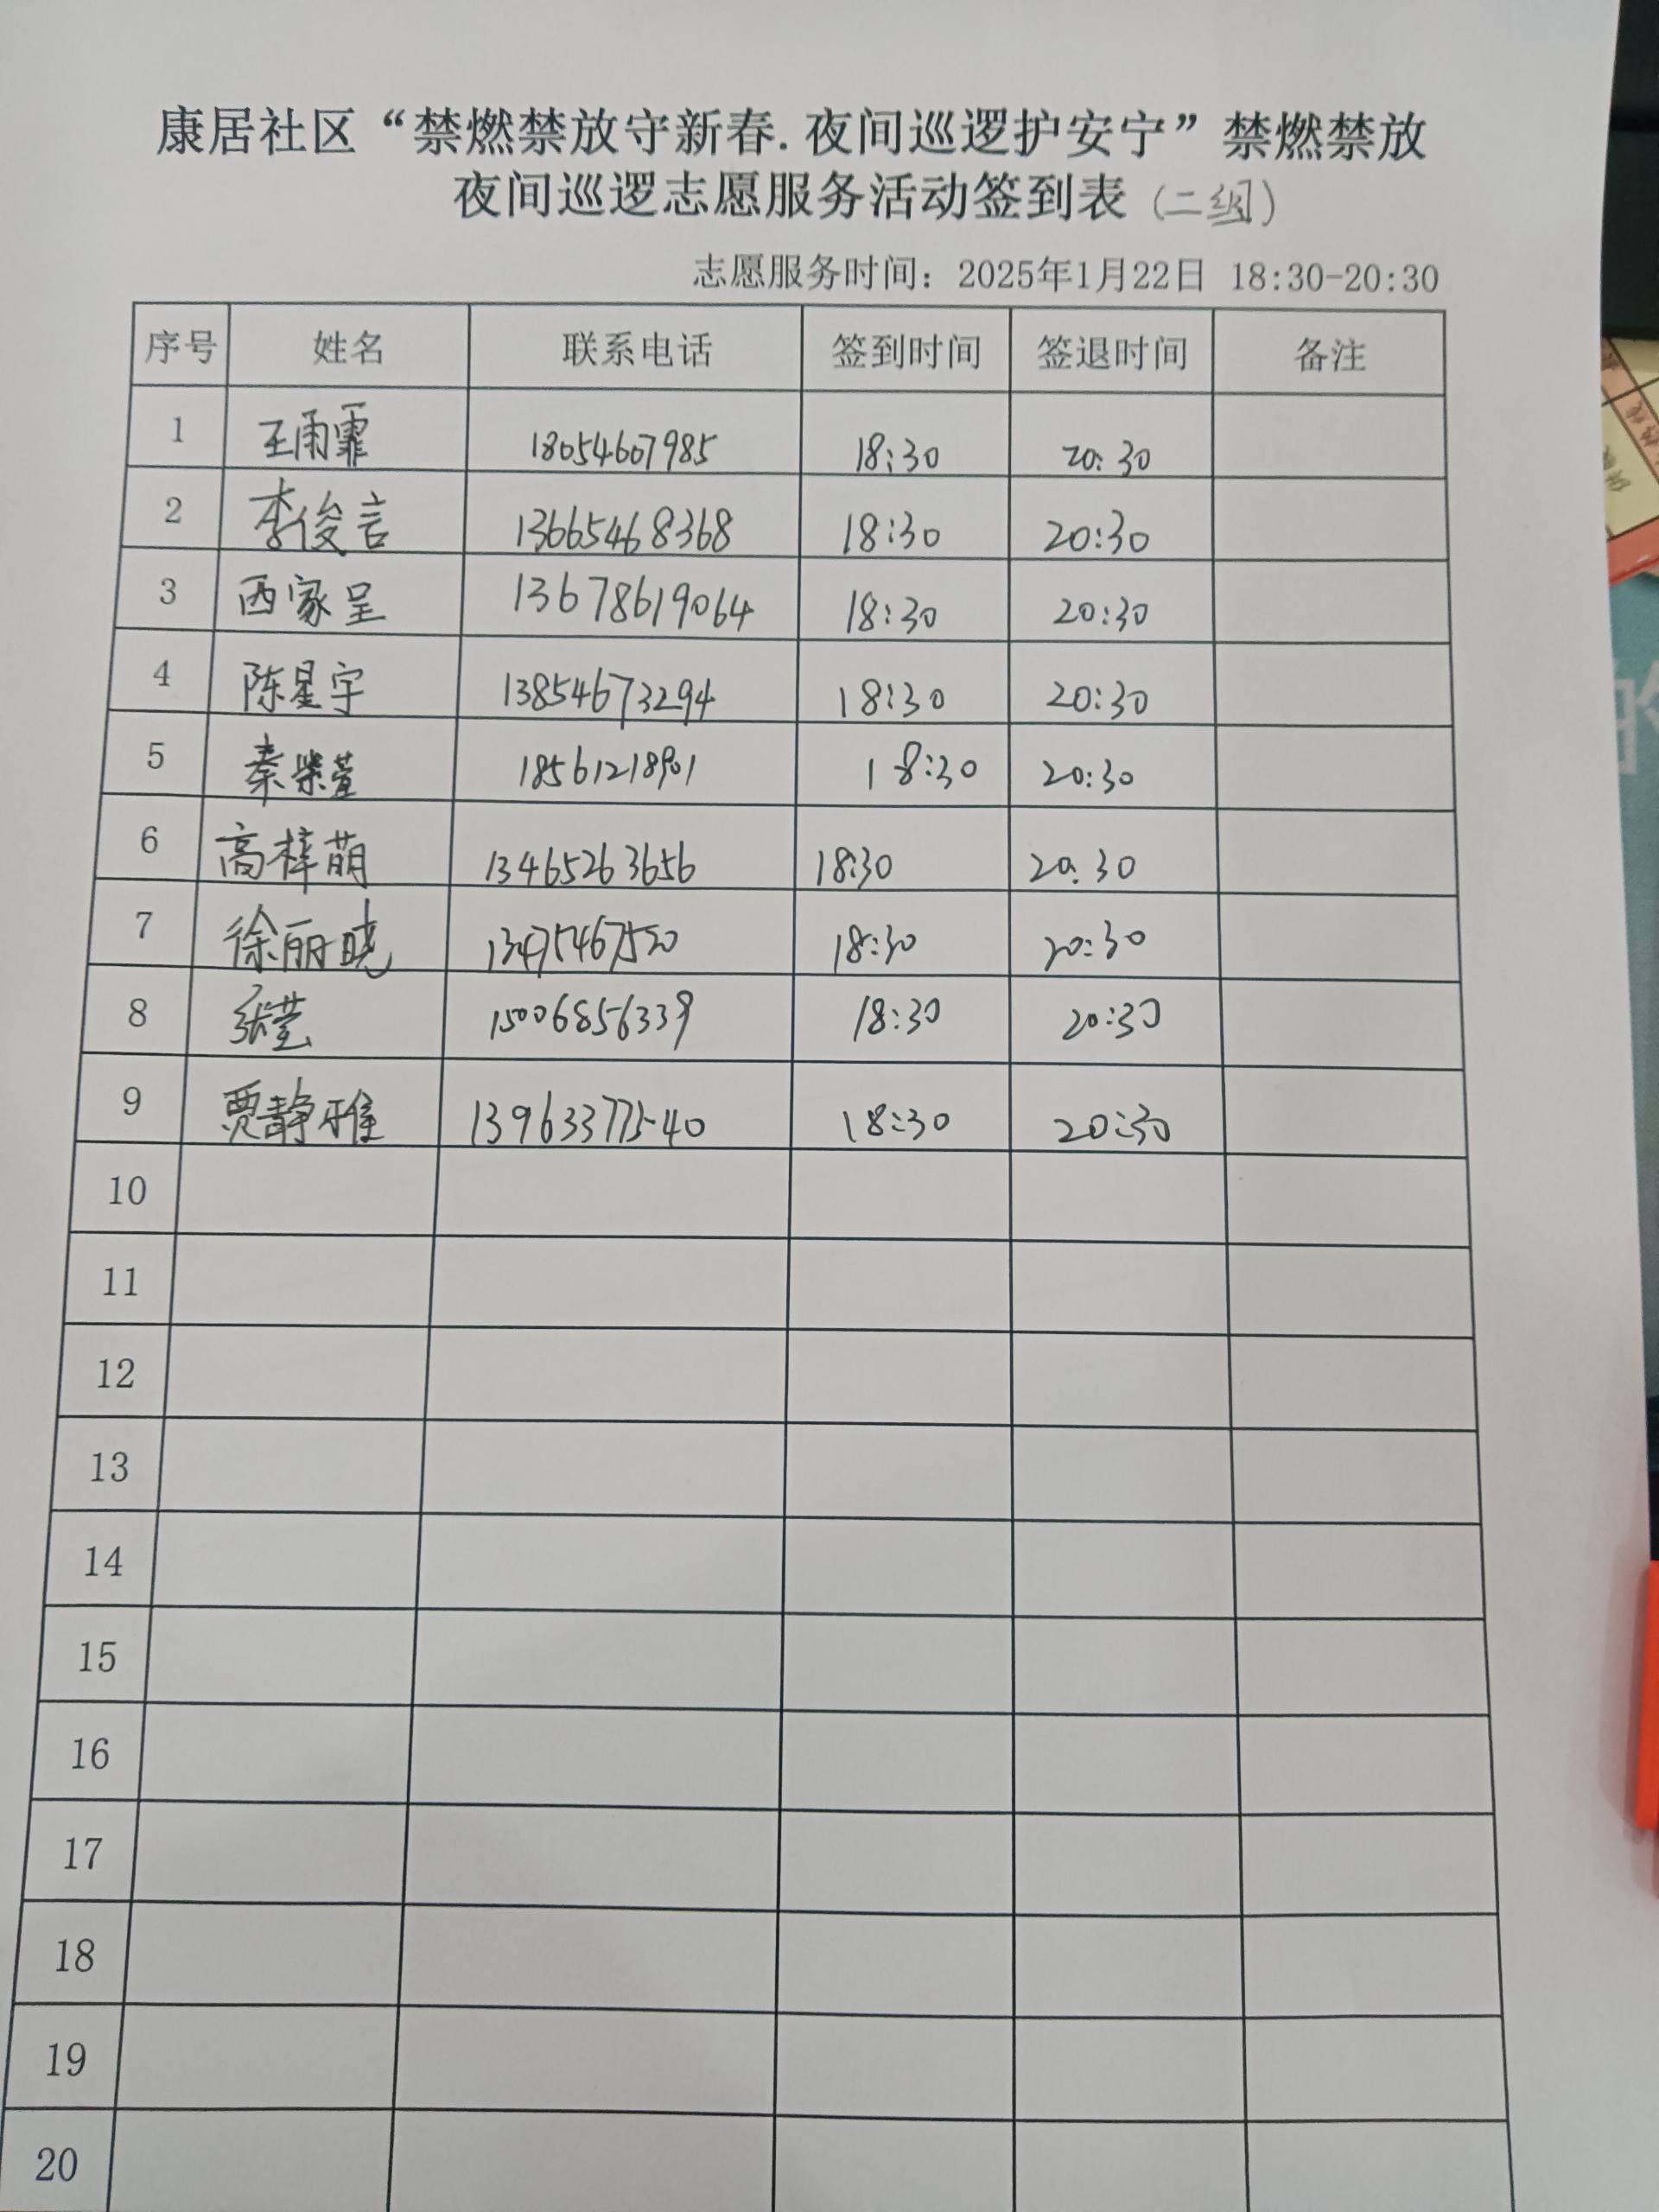 康居社区“禁燃禁放守新春.夜间巡逻护安宁”禁燃禁放
夜间巡逻志愿服务活动签到表（二组）
志愿服务时间：2025年1月22日 18:30-20:30
序号 姓名 联系电话 签到时间 签退时间 备注
1 王雨霏 18054607985 18:30 20:30
2 李俊言 13665468368 18:30 20:30
3 西家呈 13678619064 18:30 20:30
4 陈星宇 13854673294 18:30 20:30
5 秦紫萱 18561218901 18:30 20:30
6 高梓萌 13465263656 18:30 20:30
7 徐丽晓 13475467520 18:30 20:30
8 张莹 15006856339 18:30 20:30
9 贾静雅 13963377540 18:30 20:30
10
11
12
13
14
15
16
17
18
19
20